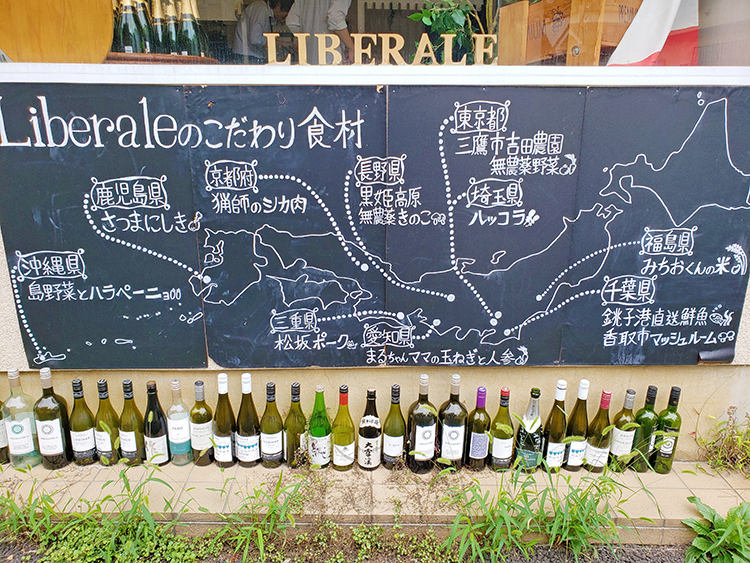 LIBERALE
Liberaleのこだわり食材
鹿児島県
さつまにしき
沖縄県
島野菜とハラペーニョ
京都府
猟師のシカ肉
長野県
黒姫高原
無農薬きのこ
東京都
三鷹市吉田農園
無農薬野菜
埼玉県
ルッコラ
福島県
みちおくんの米
千葉県
銚子港直送鮮魚
香取市マッシュルーム
三重県
松坂ポーク
愛知県
まるちゃんママの玉ねぎと人参
大雪渓